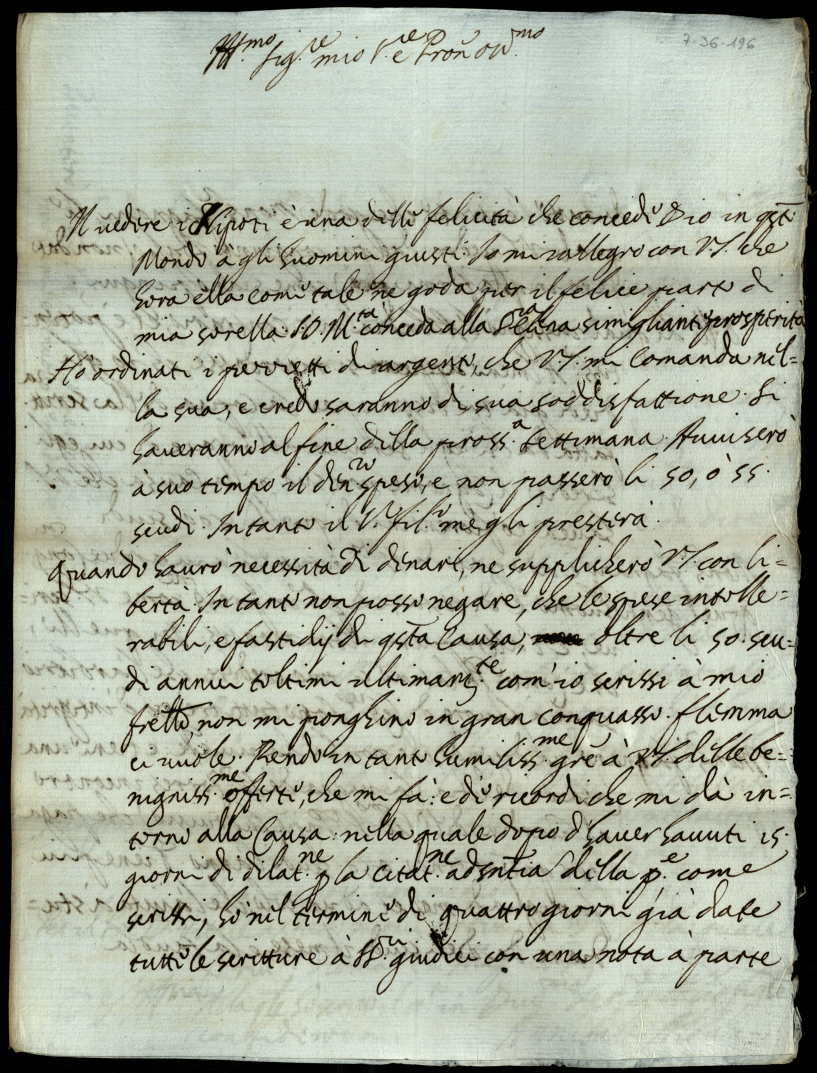 7-36-196
Ill.mo Sig.re mio S.re e Pron Oss.mo
Il vedere i Nipoti è una delle felicità che concede Dio in qsto
Mondo à gli huomini giusti. Io mi rallegro con V.S. che
hora ella come tale ne goda per il felice parto di
mia sorella. S.D. M.tà conceda alla simiglianti prosperità
Hò ordinati i pezzetti di argento, che V.S. mi comanda nel=
la sua, e credo saranno di sua soddisfattione. Si
haveranno al fine della pross.a settimana. Avviserò
à suo tempo il den.ro speso, e non passerò li 50, ò 55.
scudi. Intanto il S.r fil.o me gli presterà.
Quando haurò necessità di denari, ne supplicherò V.S. con li=
bertà. Intanto non posso negare, che le spese intolle=
rabili, e fastidij di qsta Causa, oltre li 50. scu=
di annui toltimi ultimam.te com'io scrissi à mio
frello, non mi ponghino in gran conquasso. flemma
ci vuole. Rendo in tanto humiliss.me gre à V.S. delle be=
nigniss.me offerte, che mi fà: e de ricordi che mi dà in=
torno alla Causa: nella quale dopo d'haver havuti 15.
giorni di dilat.ne p la citat.ne ad sntia della p.e come
scrissi, hò nel termine di quattro giorni già date
tutte le scritture à SS.ri giudici con una nota à parte